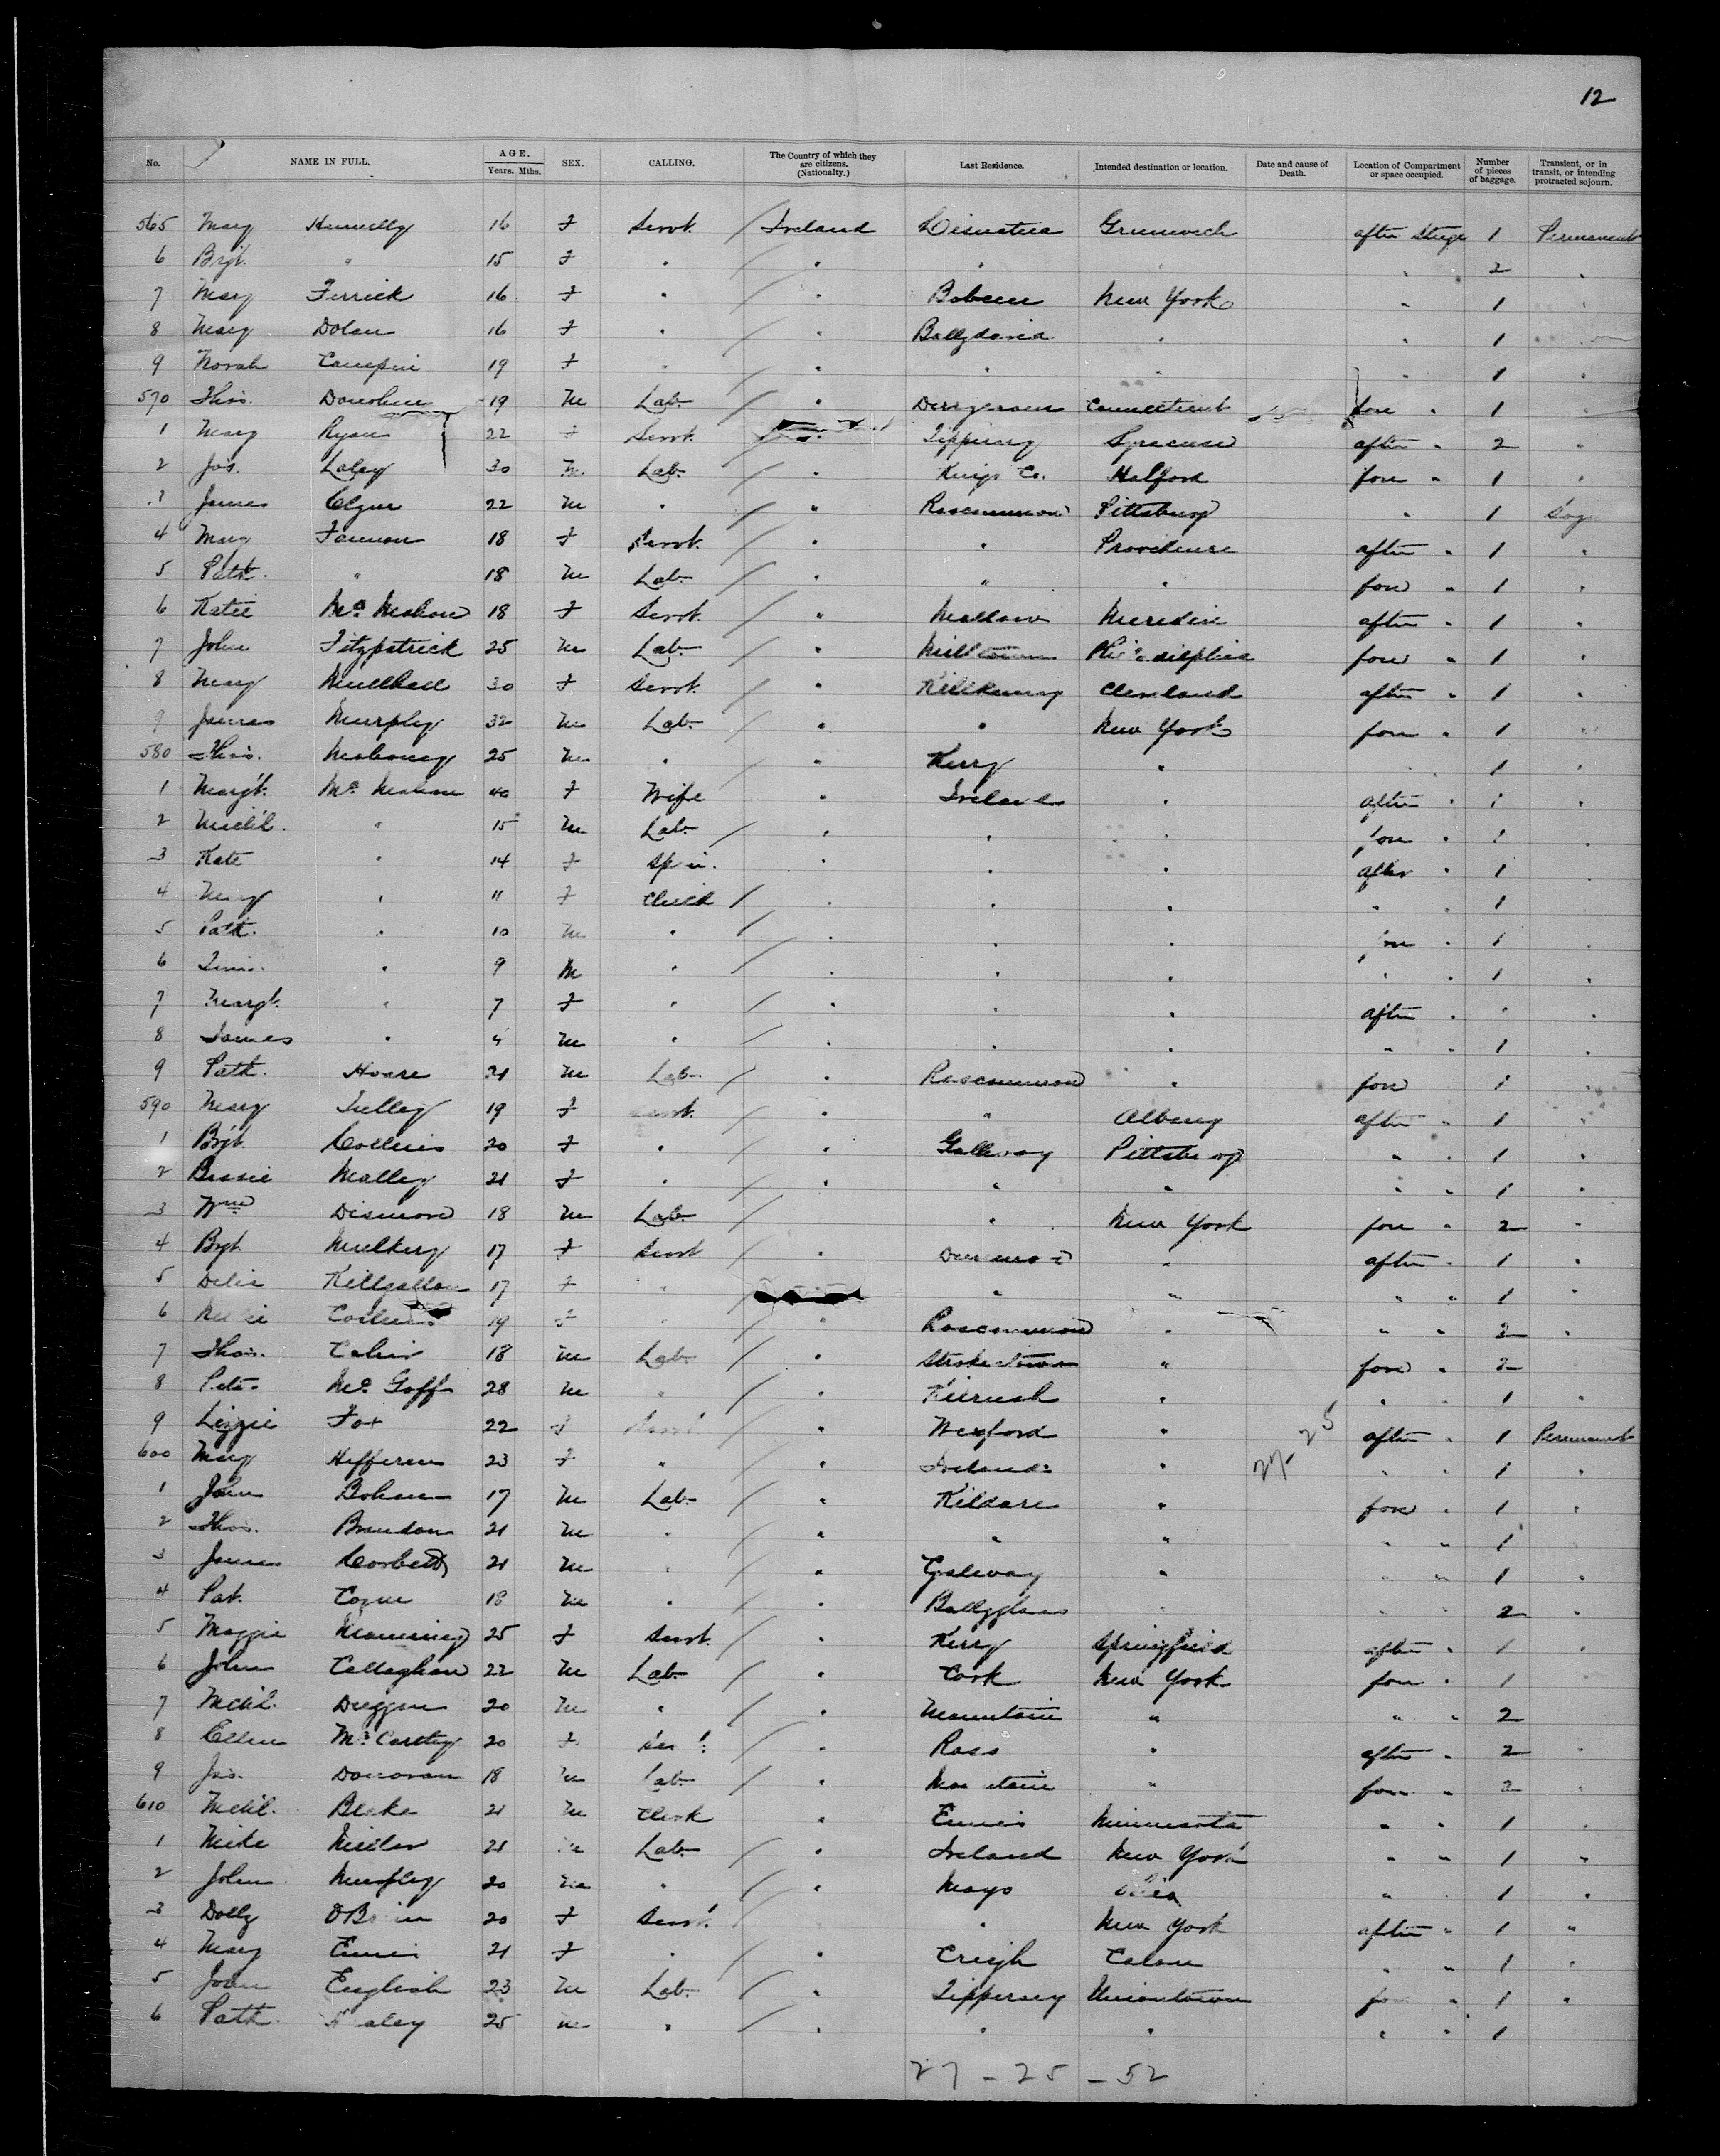 12
No. NAME IN FULL. AGE. Years. Mths. SEX. CALLING. The Country of which they are citizens. (Nationalty.) Last Residence. Intended destination or location. Date and cause of Death. Location of Compartment or space occupied. Number of pieces of baggage. Transient, or in transit, or intending protracted sojourn.
565 Mary 16 F Servt. Ireland after Steege 1 Permanent
6 Brgt. " 15 F " " " " " 2 "
7 Mary Ferrick 16 F " " New York " 1 "
8 Mary Dolan 16 F " " Ballydavid " " 1
9 Norah 19 F " " " " " 1 "
570 Thos. Donohue 19 M Lab. " Connecticut fore " 1 "
1 Mary Ryan 22 F Servt. Tipperary Syracuse after " 2 "
2 Jas. 30 M Lab. " Kings Co. fore " 1 "
3 James 22 M " " Roscommon Pittsburg " 1
4 Mary Fannon 18 F Servt. " " Providence after " 1 "
5 Patk. " 18 M Lab. " " " fore " 1 "
6 Katie Mc Mahon 18 F Servt. " Mallow Meriden after " 1 "
7 John Fitzpatrick 25 M Lab. " Milltown Philadelphia fore " 1 "
8 Mary Mulhall 30 F Servt. " Kilkenny Cleveland after " 1 "
9 James Murphy 32 M Lab. " " New York fore " 1 "
580 Thos. Mahoney 25 M " " Kerry " " 1 "
1 Margt. Mc Mahon 40 F Wife " Ireland " after " 1 "
2 Mich'l. " 15 M Lab. " " " fore " 1 "
3 Kate " 14 F Spin. " " " after " 1 "
4 Mary " 11 F Child " " " " 1
5 Patk. " 10 M " " " " fore " 1 "
6 " 9 M " " " " " " 1 "
7 Margt. " 7 F " " " " after " " "
8 James " 4 M " " " " " " 1 "
9 Patk. Hoare 21 M Lab. " Roscommon " fore 1 "
590 Mary Tully 19 F Servt. " " Albany after " 1 "
1 Brgt. Collins 20 F " " Galway Pittsburg " " 1 "
2 Bessie Malley 21 F " " " " " " 1 "
3 Wm Dismore 18 M Lab. " New York fore " 2 "
4 Brgt. Mulkery 17 F Servt " " after " 1 "
5 Delia Killgallon 17 F " " " " " 1 "
6 19 F " " Roscommon " " " 2 "
7 Thos. 18 M Lab. " Strokestown " fore " 2
8 Peter Mc Goff 28 M " " Kilrush " " " 1 "
9 Lizzie Fox 22 F Servt " Wexford " after " 1 Permanent
27-25
600 Mary Hefferen 23 F " " Ireland " " " 1 "
1 John Bohan 17 M Lab. " Kildare " fore " 1 "
2 Thos. Brandon 21 M " " " " " " 1
3 James Corbett 21 M " " Galway " " " 1 "
4 Pat. Coyne 18 M " " Ballyglass " " " 2 "
5 Maggie Manning 25 F Servt. " Kerry Springfield after " 1 "
6 John Callaghan 22 M Lab. " Cork New York fore " 1 "
7 Michl. Duggan 20 M " " Mountain " " " 2
8 Ellen Mc Carthy 20 F Servt. " Ross " after " 2 "
9 Jas. Donovan 18 M Lab. " Mountain " fore " 2 "
610 Michl. Blake 21 M Clerk " Ennis Minnesota " " 1 "
1 Mike 21 M Lab. " Ireland New York " " 1 "
2 John Murphy 20 M " " Mayo " " 1 "
3 Dolly O'Brien 20 F Servt. " New York after " 1 "
4 Mary 21 F " " Creigh " " 1 "
5 John English 23 M Lab. " Tipperary Uniontown fore " 1 "
6 Patk. 25 M " " " " " " 1
27 - 25 - 52